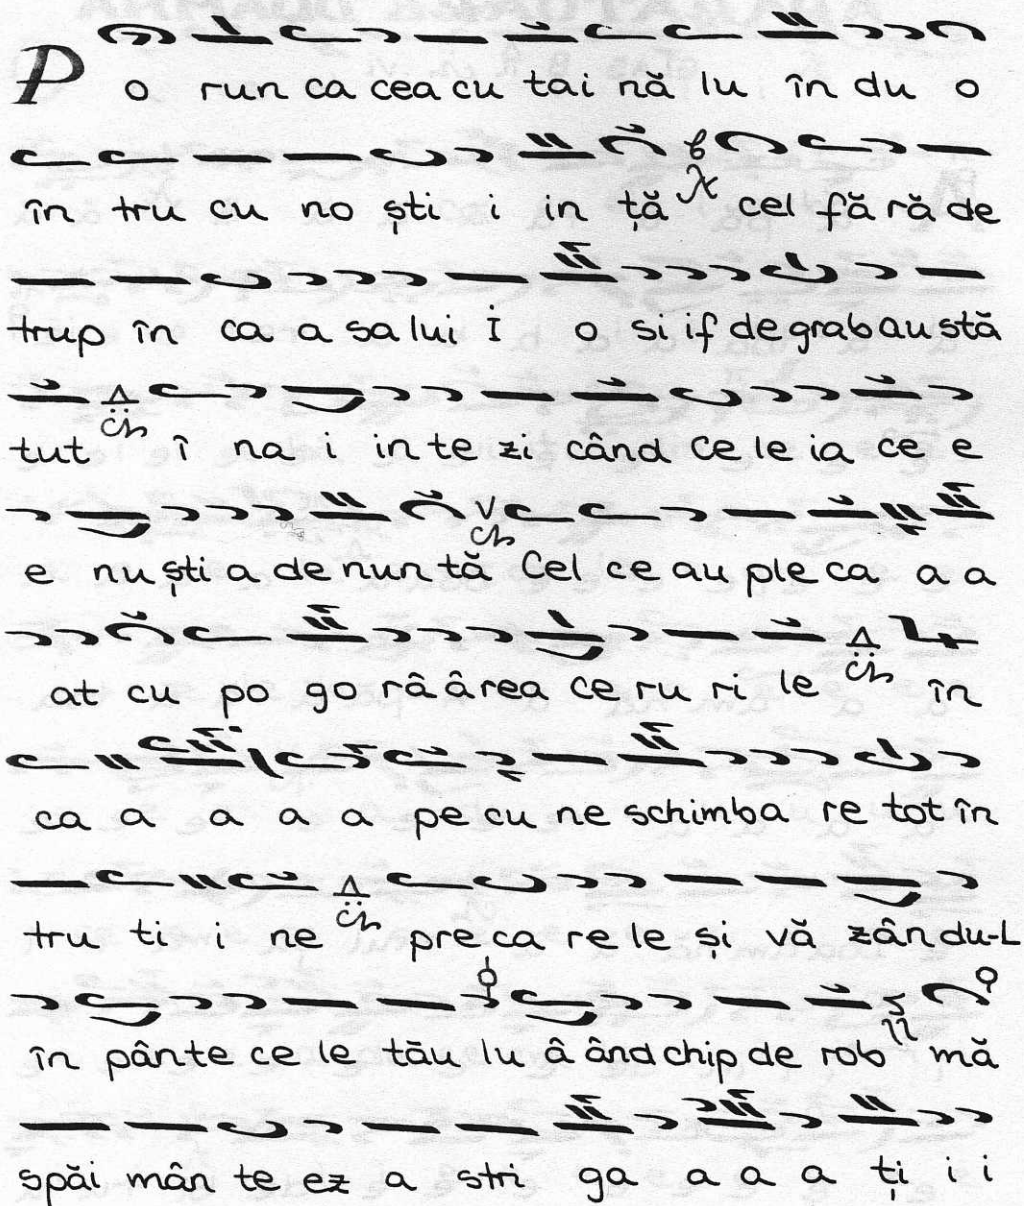 P o run ca cea cu tai nă lu în du o
în tru cu no ști i in ță cel fă ră de
trup în ca a sa lui I o si if de grab au stă
tut î na i in te zi când ce le ia ce e
e nu ști a de nun tă Cel ce au ple ca a a
at cu po go râ â rea ce ru ri le în
ca a a a a pe cu ne schimba re tot în
tru ti i ne pre ca re le și vă zân du-L
în pânte ce le tău lu â ând chip de rob mă
spăi mân te ez a stri ga a a a ți i i